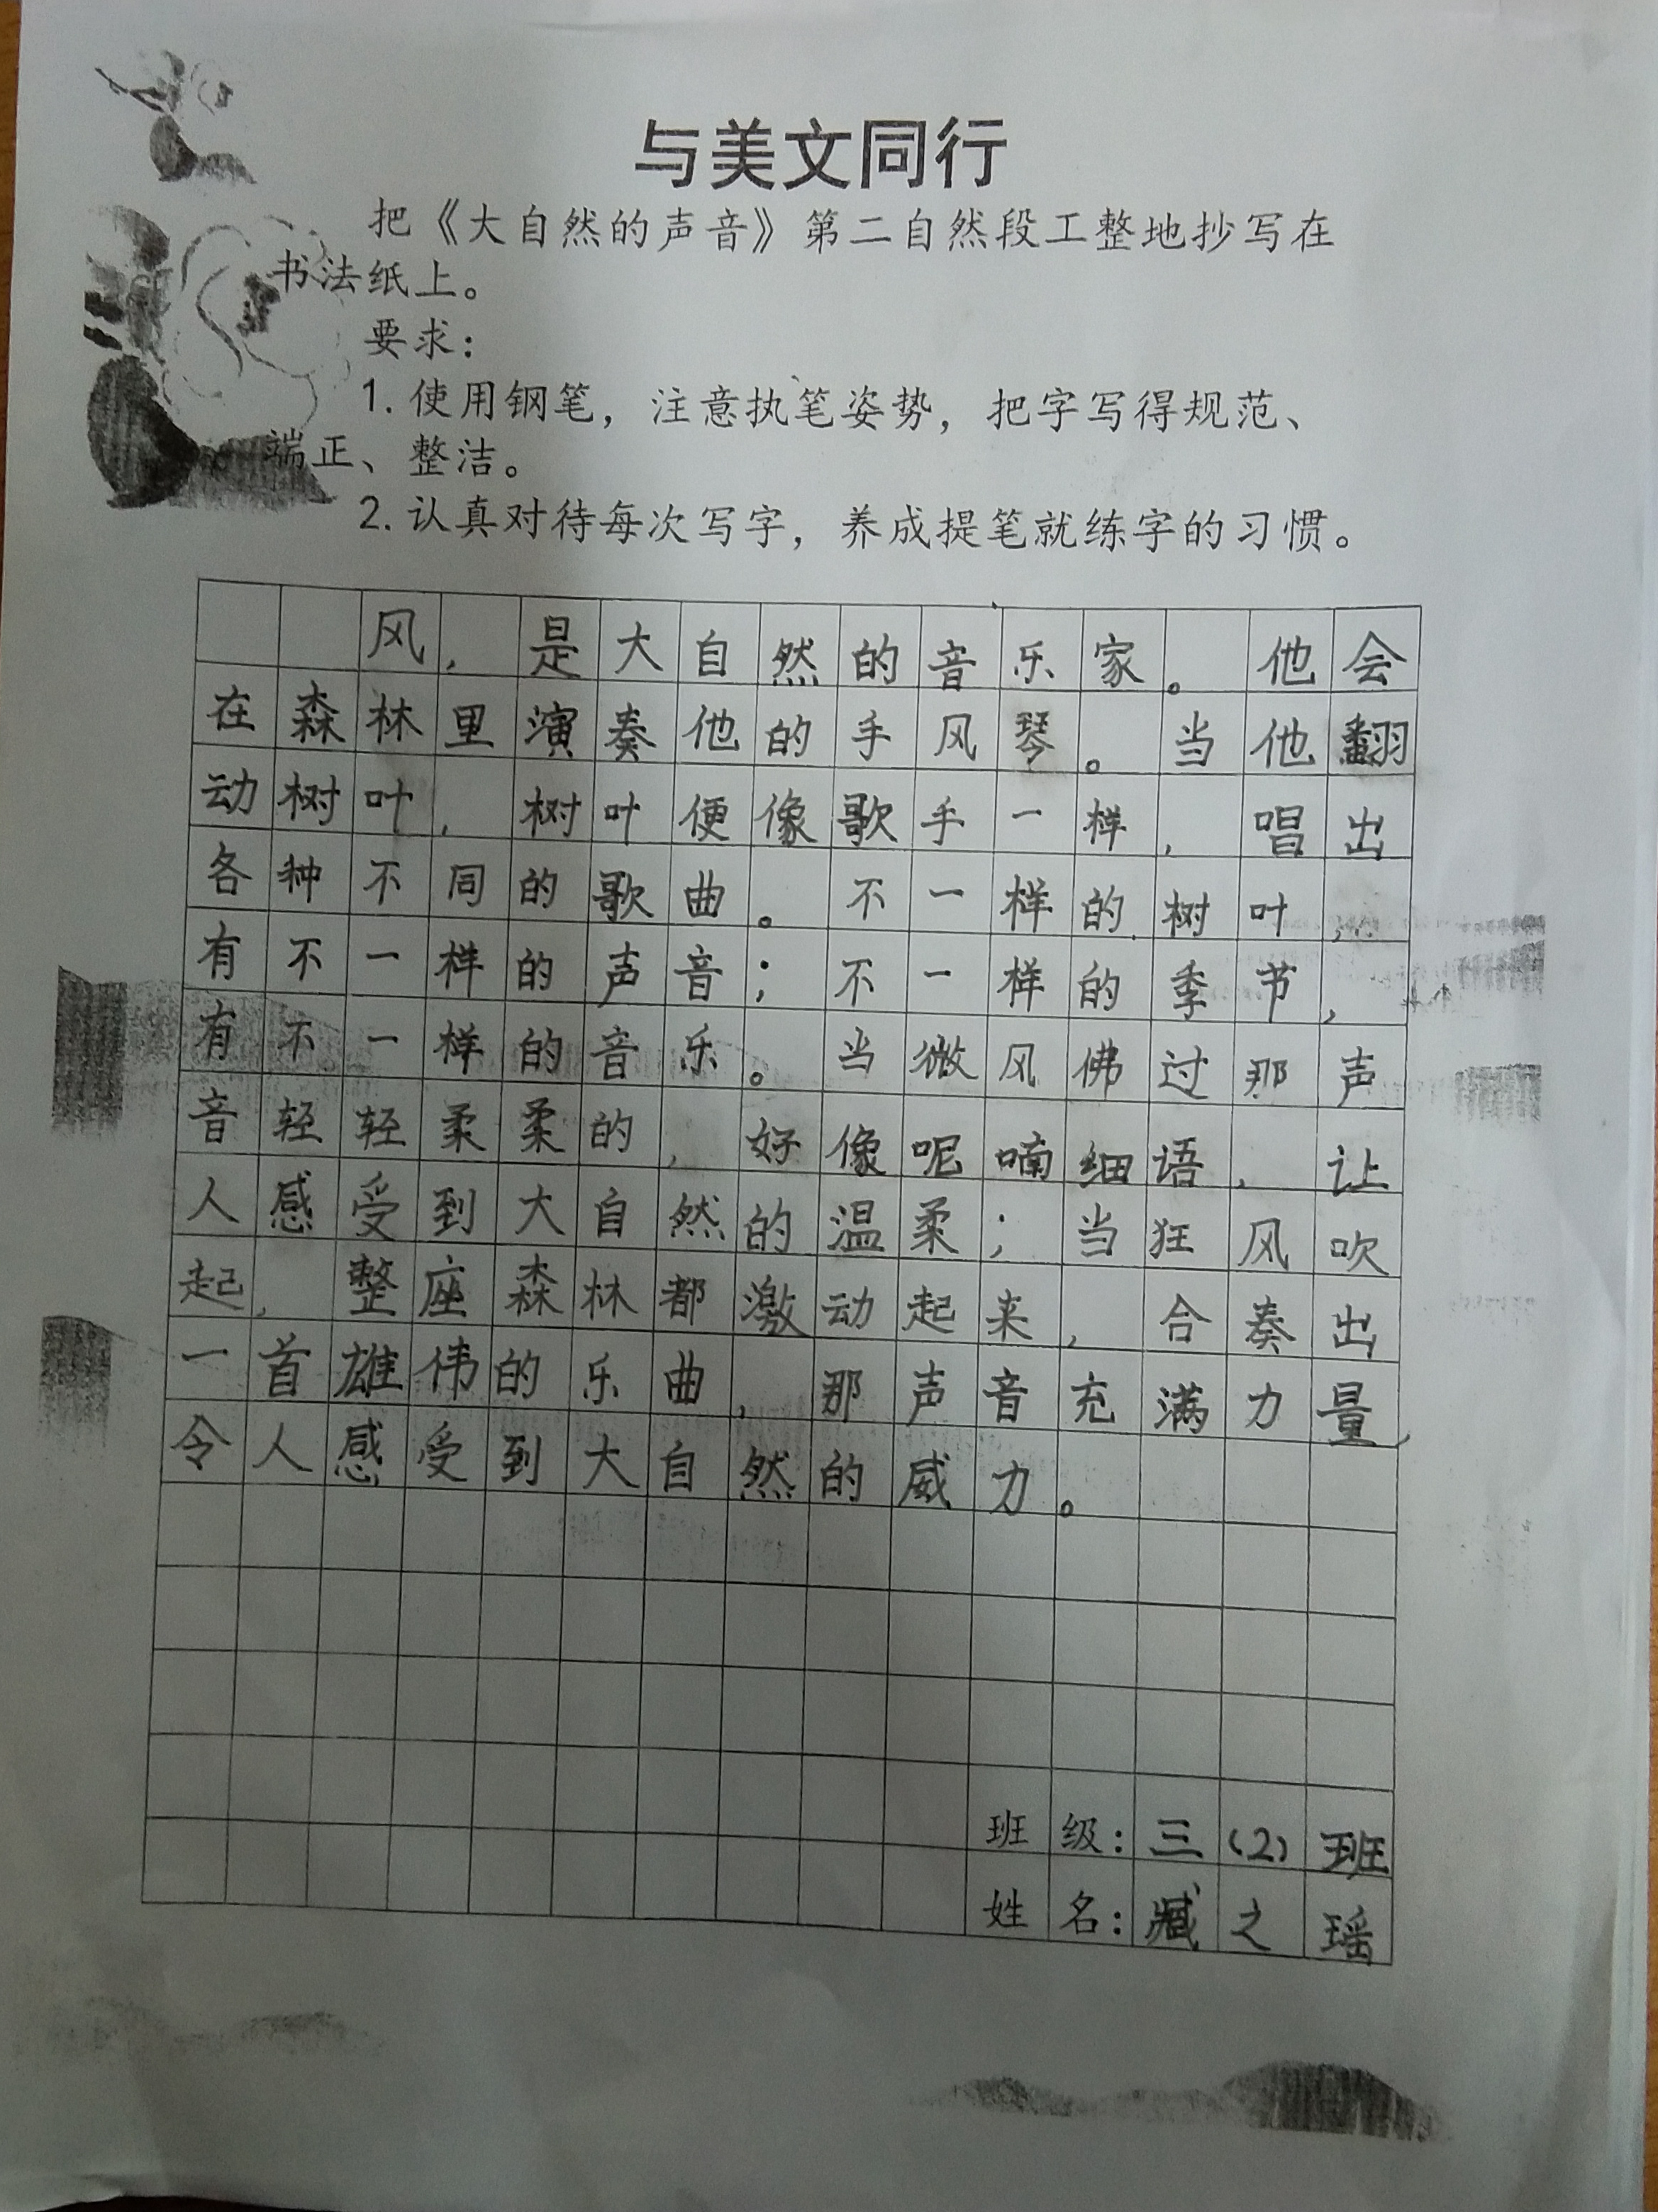 与美文同行
把《大自然的声音》第二自然段工整地抄写在
书法纸上。
要求：
1. 使用钢笔，注意执笔姿势，把字写得规范、
端正、整洁。
2. 认真对待每次写字，养成提笔就练字的习惯。
风，是大自然的音乐家。他会
在森林里演奏他的手风琴。当他翻
动树叶，树叶便像歌手一样，唱出
各种不同的歌曲。不一样的树叶，
有不一样的声音；不一样的季节，
有不一样的音乐。当微风佛过那声
音轻轻柔柔的，好像呢喃细语，让
人感受到大自然的温柔；当狂风吹
起，整座森林都激动起来，合奏出
一首雄伟的乐曲，那声音充满力量，
令人感受到大自然的威力。
班级：三（2）班
姓名：臧之瑶